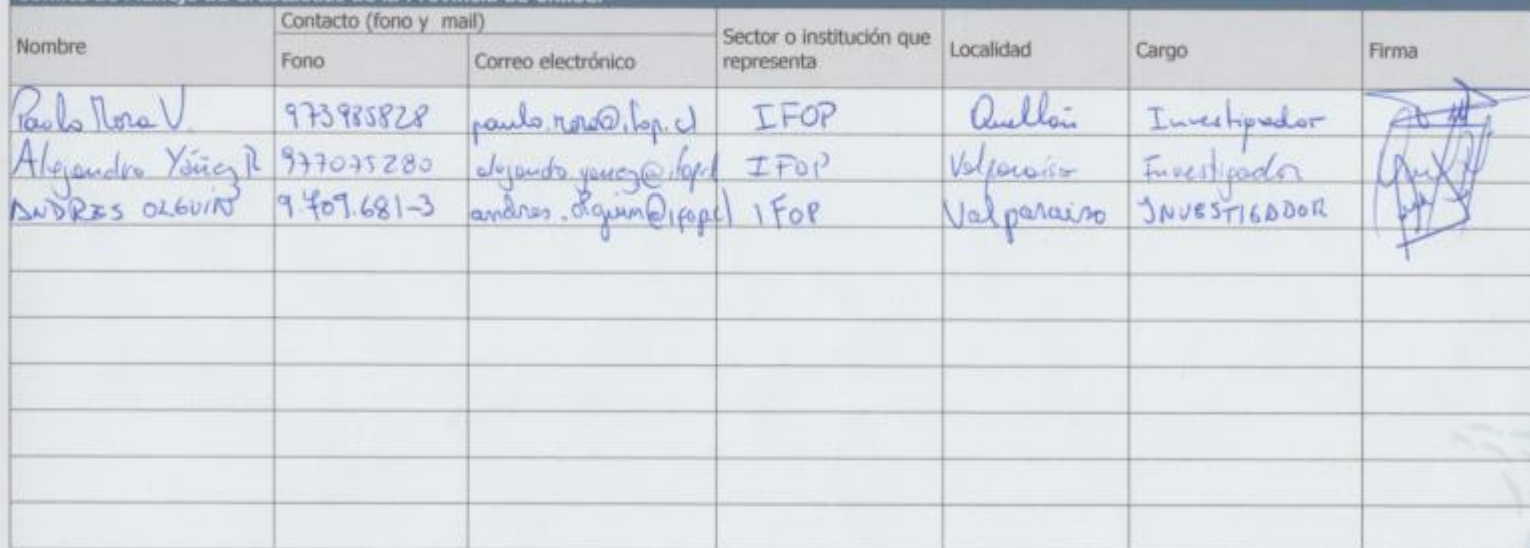 Contacto (fono y mail)
Nombre Fono Correo electrónico Sector o institución que representa Localidad Cargo Firma
Paolo Mora V. 973985828 IFOP Quellón Investigador
Alejandro Yáñez R 977075280 IFOP Valparaíso Investigador
ANDRES OLGUIN 9.709.681-3 andres.olguin@ifop.cl IFOP Valparaiso INVESTIGADOR